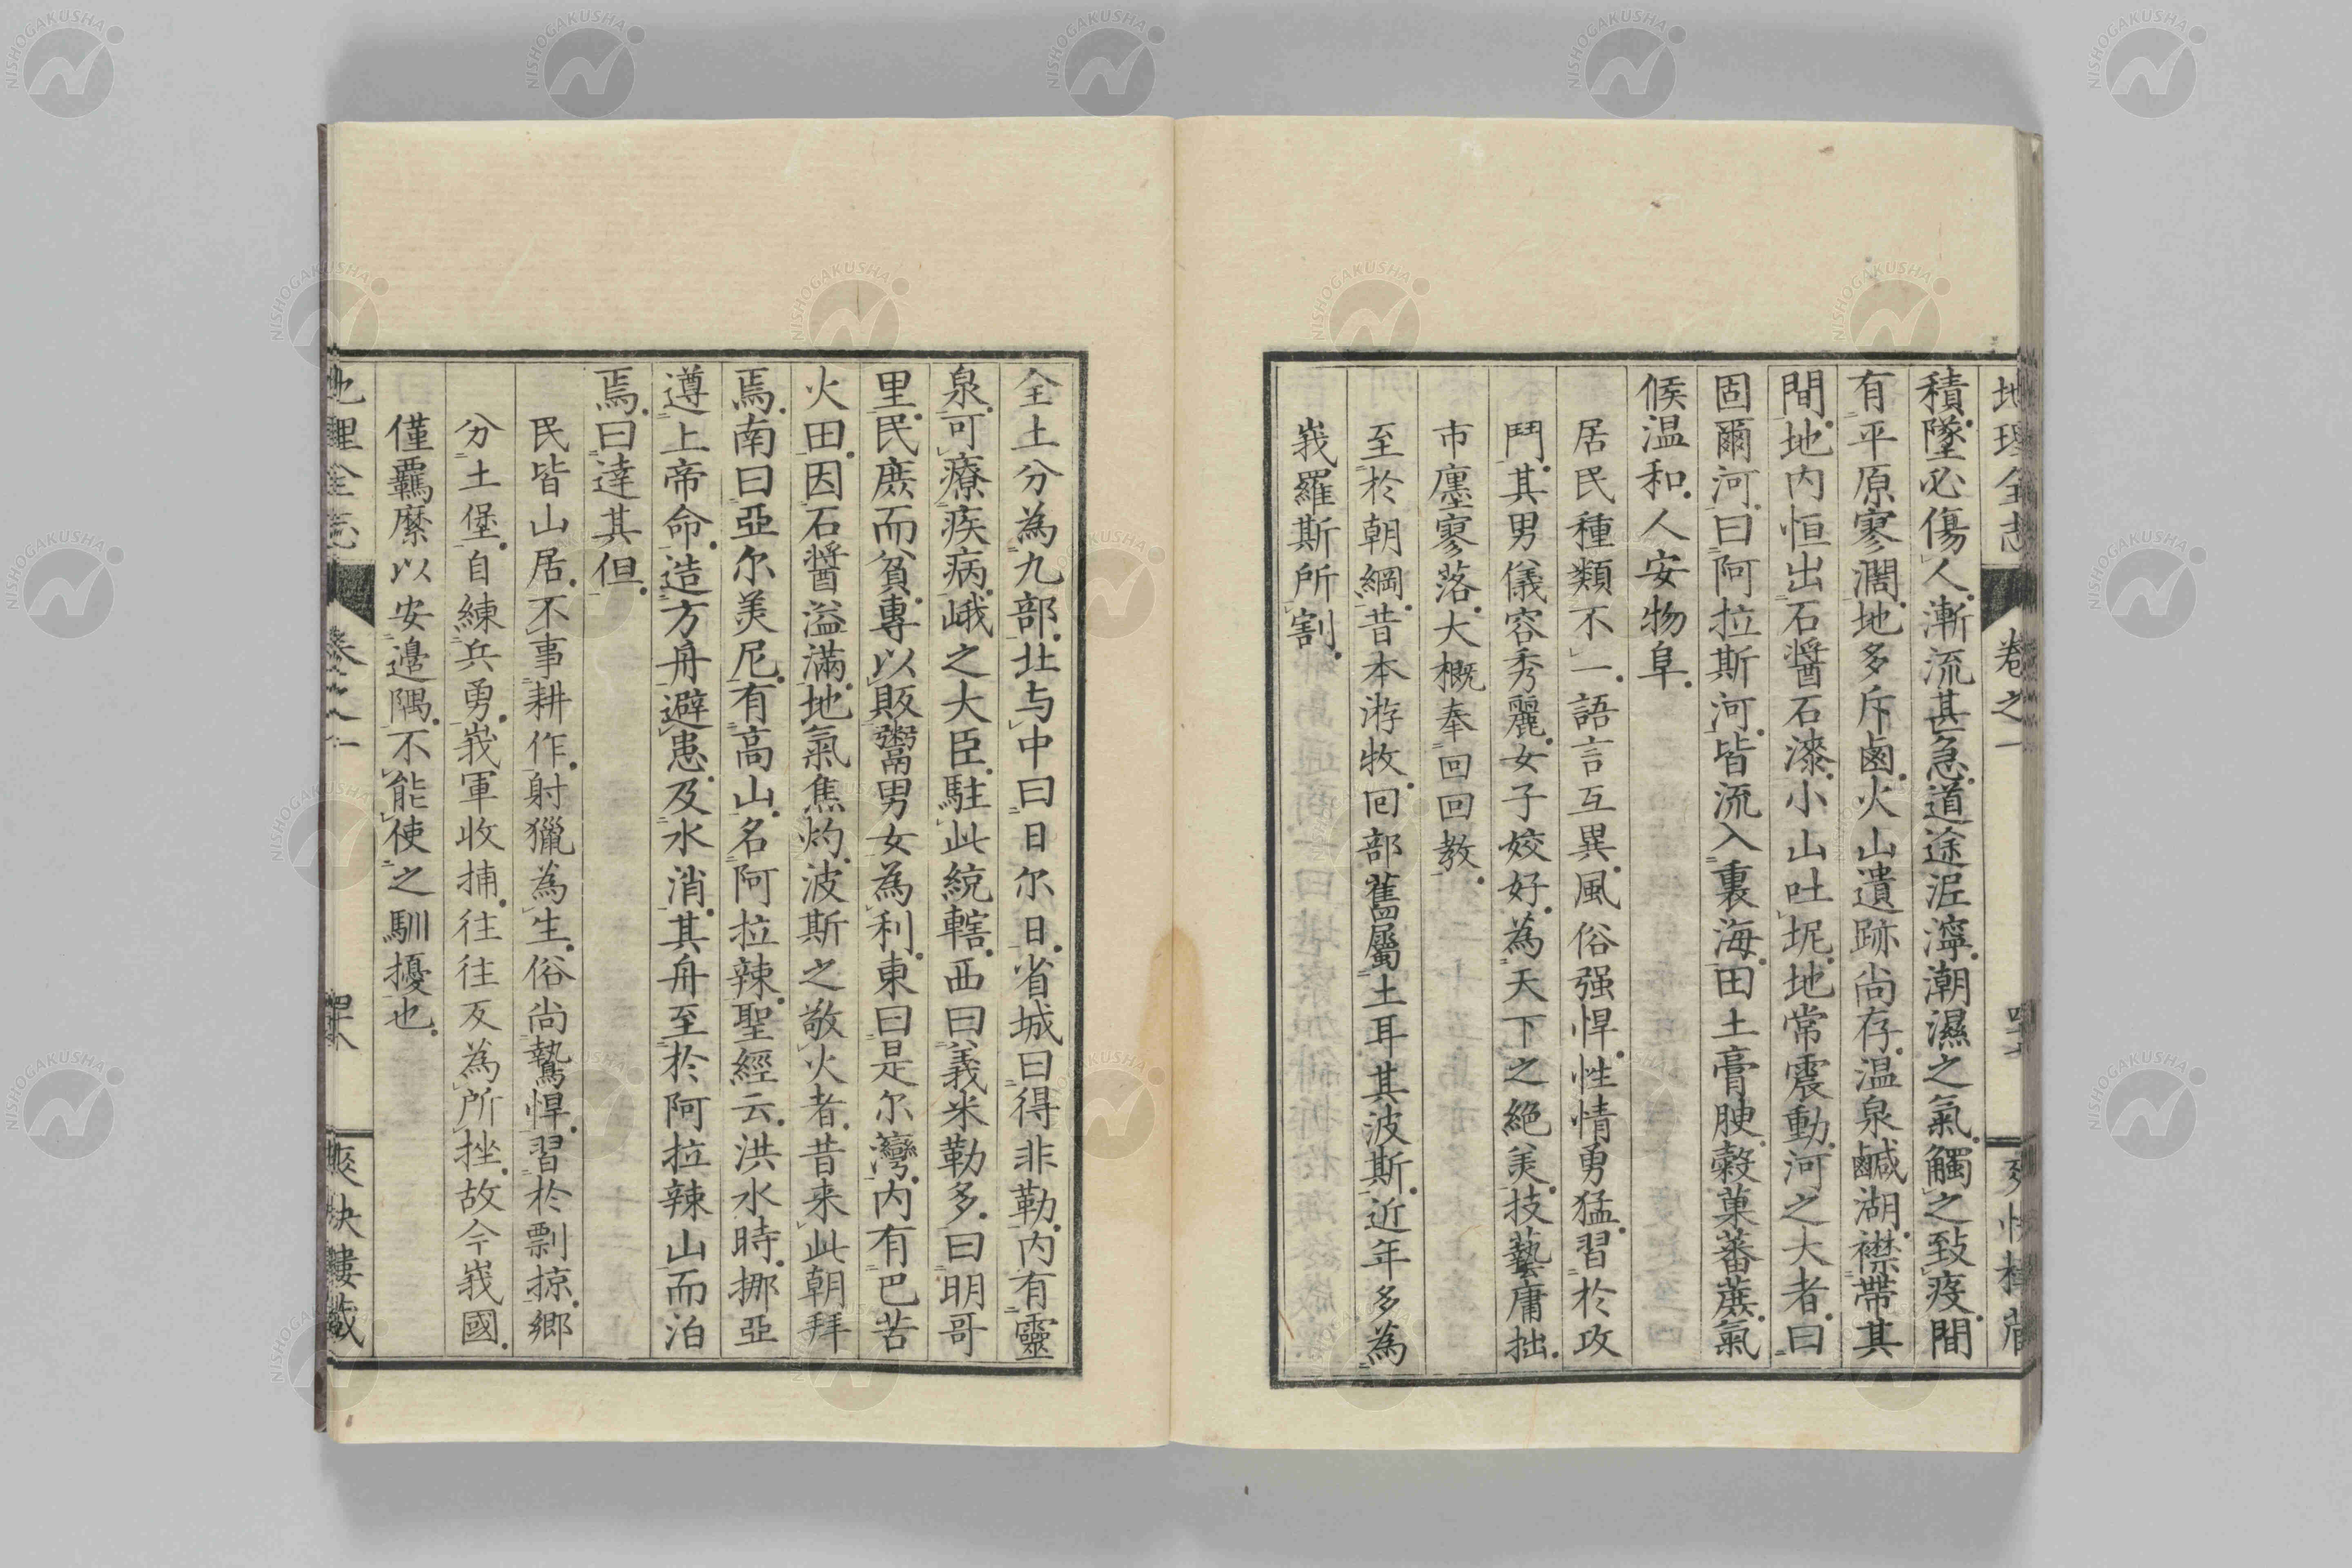 地理全志 卷之一
積墜必傷人漸流甚急道途泥濘潮濕之氣觸之致疫間
有平原寥濶地多斥鹵火山遺跡尚存温泉鹹湖襟帶其
間地内恒出石醬石漆小山吐坭地常震動河之大者曰
固爾河曰阿拉斯河皆流入裏海田土膏腴穀菓蕃蔗氣
候温和人安物阜
居民種類不一語言互異風俗强悍性情勇猛習於攻
鬥其男儀容秀麗女子姣好為天下之絕美技藝庸拙
市廛寥落大概奉回回教
至於朝綱昔本游牧回部舊屬土耳其波斯近年多為
峩羅斯所割
全土分為九部北与中曰日尔日省城曰得非勒内有靈
泉可療疾病峨之大臣駐此統轄西曰義米勒多曰明哥
里民庶而貧專以販鬻男女為利東曰是尔灣内有巴苦
火田因石醬溢滿地氣焦灼波斯之敬火者昔来此朝拜
焉南曰亞尔美尼有高山名阿拉辣聖經云洪水時挪亞
遵上帝命造方舟避患及水消其舟至於阿拉辣山而泊
焉曰達其但
民皆山居不事耕作射獵為生俗尚鷙悍習於剽掠鄉
分土堡自練兵勇峩軍收捕往往反為所挫故今峩國
僅覊縻以安邊隅不能使之馴擾也
地理全志 卷之一 爽快樓藏
NISHOGAKUSHA